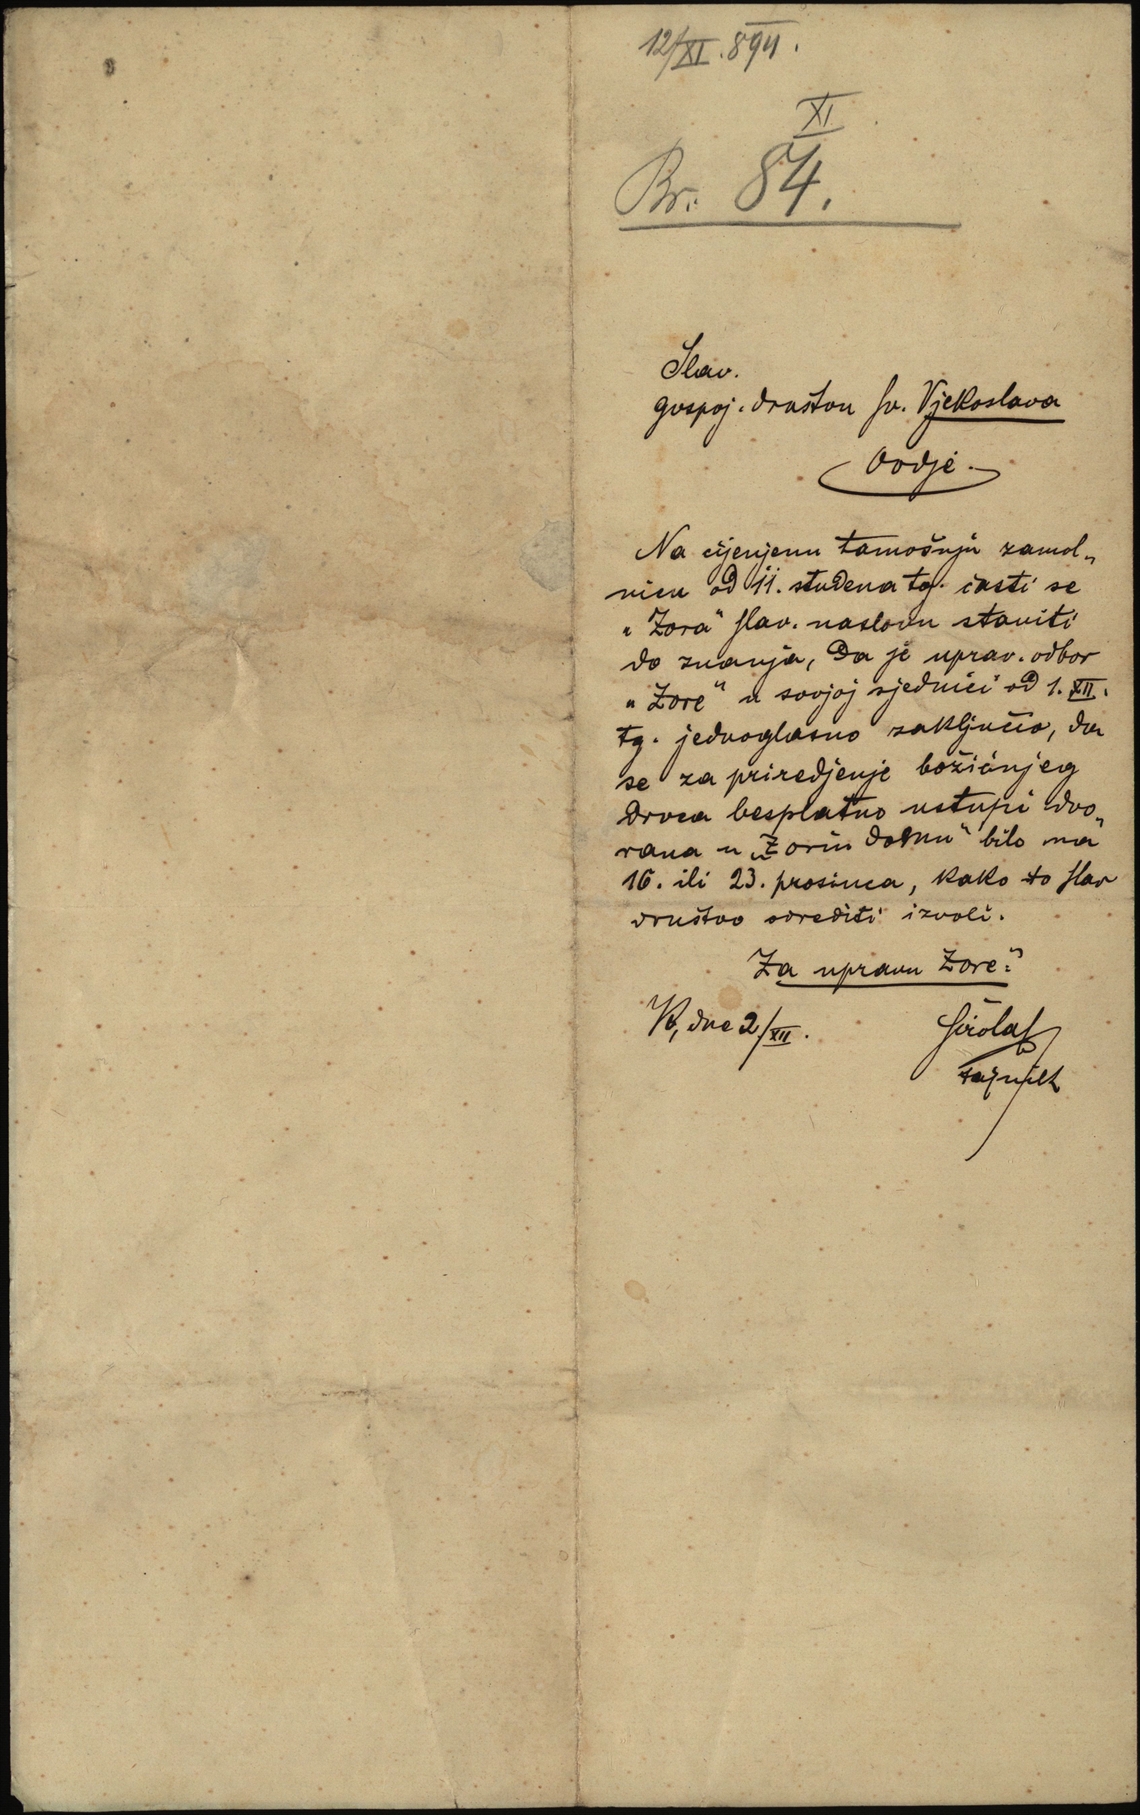 12/XI. 894.
XI
Br. 84.
Slav.
gospoj. društvu sv. Vjekoslava
Ovdje.
Na cijenjenu tamošnju zamol„
nicu od 11. studena tg. časti se
„Zora“ slav. naslovu staviti
do znanja, da je uprav. odbor
„Zore“ u svojoj sjednici od 1. XII.
tg. jednoglasno zaključio, da
se za priredjenje božićnjeg
drvca besplatno ustupi dvo„
rana u „Zorin domu“ bilo na
16. ili 23. prosinca, kako to slav
društvo odrediti izvoli.
Za upravu Zore:“
K, dne 2/XII.
tajnik